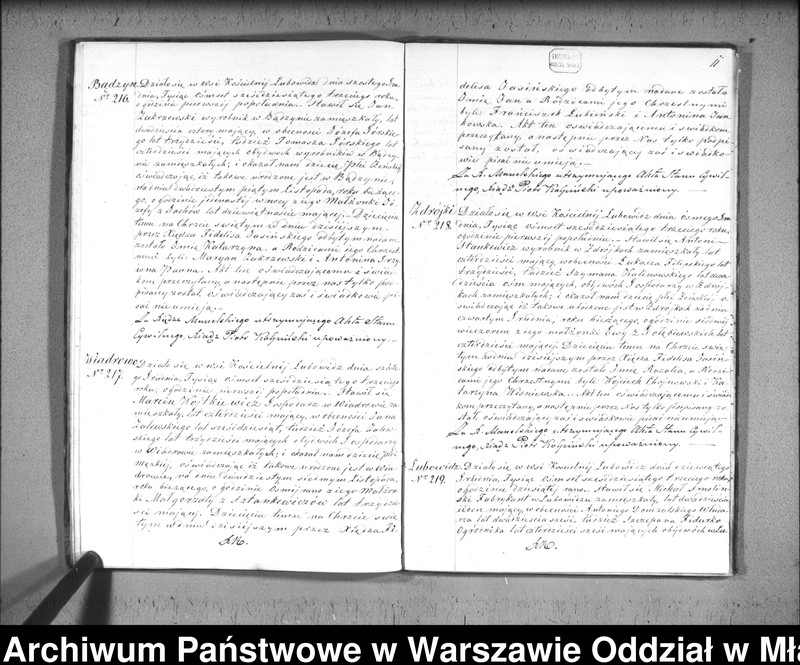 Bądzyn Działo się w wsi Kościelnéj Lubowidz dnia szóstego Gru
No 216. dnia, Tysiąc ośmset sześćdziesiątego trzeciego roku,
o godzinie pierwszéj popołudniu. Stawił się Jan
Zakrzewski wyrobnik w Bądzynie zamieszkały, lat
dwadzieścia cztery mający, w obecności Józefa Górskie
go lat trzydzieści, tudzież Tomasza Górskiego lat
czterdzieści mających obydwóch wyrobników w Bądzy
nie zamieszkałych; i okazał nam dziecię płci żeńskiéj
oświadczając iż takowe urodzone jest w Bądzynie,
dnia dwudziestym piątym Listopada, roku bieżące
go, o godzinie jedenastéj w nocy z jego Małżonki Jó
zefy z Sochów lat dziewiętnaście mającéj. Dziecięciu
temu na Chrzcie świętym w dniu dzisiejszym
przez Księdza Fidelisa Jasińskiego odbytym nadane
zostało Imie Katarzyna, a Rodzicami jego Chrzest
nemi byli: Maryan Zakrzewski i Antonina
Panna. Akt ten oświadczającemu i świad
kom przeczytany, a następnie przez nas tylko pod
pisany został, oświadczający zaś i świadkowie pi
sać nie umieją.
Za Księdza Manelskiego utrzymującego Akta Stanu
Cywilnego, Xiądz Piotr Kałpiński upoważniony.
Wiadrowo Działo się w wsi Kościelnéj Lubowidz dnia szóste
No 217. go Grudnia, Tysiąc ośmset sześćdziesiątego trzeciego
roku, o godzinie pierwszéj popołudniu. Stawił się
Marcin Wojtkiewicz Gospodarz w Wiadrowie za
mieszkały, lat czterdzieści mający, w obecności Jana
Zalewskiego lat sześćdziesiąt, tudzież Józefa
skiego lat trzydzieści mających obydwóch Gospodarzy
w Wiadrowie zamieszkałych; i okazał nam dziecię płci
męzkiéj, oświadczając iż takowe urodzone jest w Wia
drowie, na dniu dwudziestym siódmym Listopada,
roku bieżącego, o godzinie ósméj rano z jego Małżon
ki Małgorzaty z Sztankiewiczów lat trzydzie
ści mającéj. Dziecięciu temu na Chrzcie świę
tym w dniu dzisiejszym przez Xiędza Fi
11
delisa Jasińskiego odbytym nadane zostało
Imie Jan a Rodzicami jego Chrzestnymi
byli: Franciszek Lubieński i Antonina Jan
kowska. Akt ten oświadczającemu i świadkom
przeczytany, a następnie przez Nas tylko podpi
sany został, oświadczający zaś i świadko
wie pisać nie umieją.
Za X. Manelskiego utrzymującego Akta Stanu Cywil
nego, Xiądz Piotr Kałpiński upoważniony.
Zdrójki Działo się w wsi Kościelnéj Lubowidz dnia ósmego Gru
No 218. dnia, Tysiąc ośmset sześćdziesiątego trzeciego roku,
o godzinie pierwszéj popołudniu. Stawił się Antoni
Stankiewicz wyrobnik w Zdrójkach zamieszkały lat
czterdzieści mający, w obecności Łukasza Filipskiego lat
trzydzieści, tudzież Szymona Kalinowskiego lat dwa
dzieścia ośm mających, obydwóch Gospodarzy w Zdrój
kach zamieszkałych; i okazał nam dziecię płci żeńskiéj, o
świadczając iż takowe urodzone jest w Zdrójkach na dniu
czwartym Grudnia, roku bieżącego, o godzinie siódméj
wieczorem z jego małżonki Ewy z Gołębiewskich lat
czterdzieści mającéj. Dziecięciu temu na Chrzcie świę
tym w dniu dzisiejszym przez Xiędza Fidelisa Jasiń
skiego odbytym nadane zostało Imie Rozalia, a Rodzi
cami jego Chrzestnymi byli Wojciech Chojnowski i Ka
tarzyna Wiśniewska. Akt ten oświadczającemu i świad
kom przeczytany, a następnie przez Nas tylko podpisany zo
stał, oświadczający zaś i świadkowie pisać nie umieją.
Za X. Manelskiego utrzymującego Akta Stanu Cywil
nego, Xiądz Piotr Kałpiński upoważniony.
Lubowidz Działo się w wsi Kościelnéj Lubowidz dnia dziewiątego
No 219. Grudnia, Tysiąc ośmset sześćdziesiątego trzeciego roku,
o godzinie dziesiątéj rano. Stawił się Michał Smoliń
ski Fabrykant w Lubowidzu zamieszkały, lat dwadzieścia
siedem mający, w obecności Antoniego Domżalskiego Młyna
rza lat dwadzieścia sześć, tudzież Szczepana Fidurko
Ogrodnika lat czterdzieści sześć mających obydwóch w Lu
Archiwum Państwowe w Warszawie Oddział w Mła